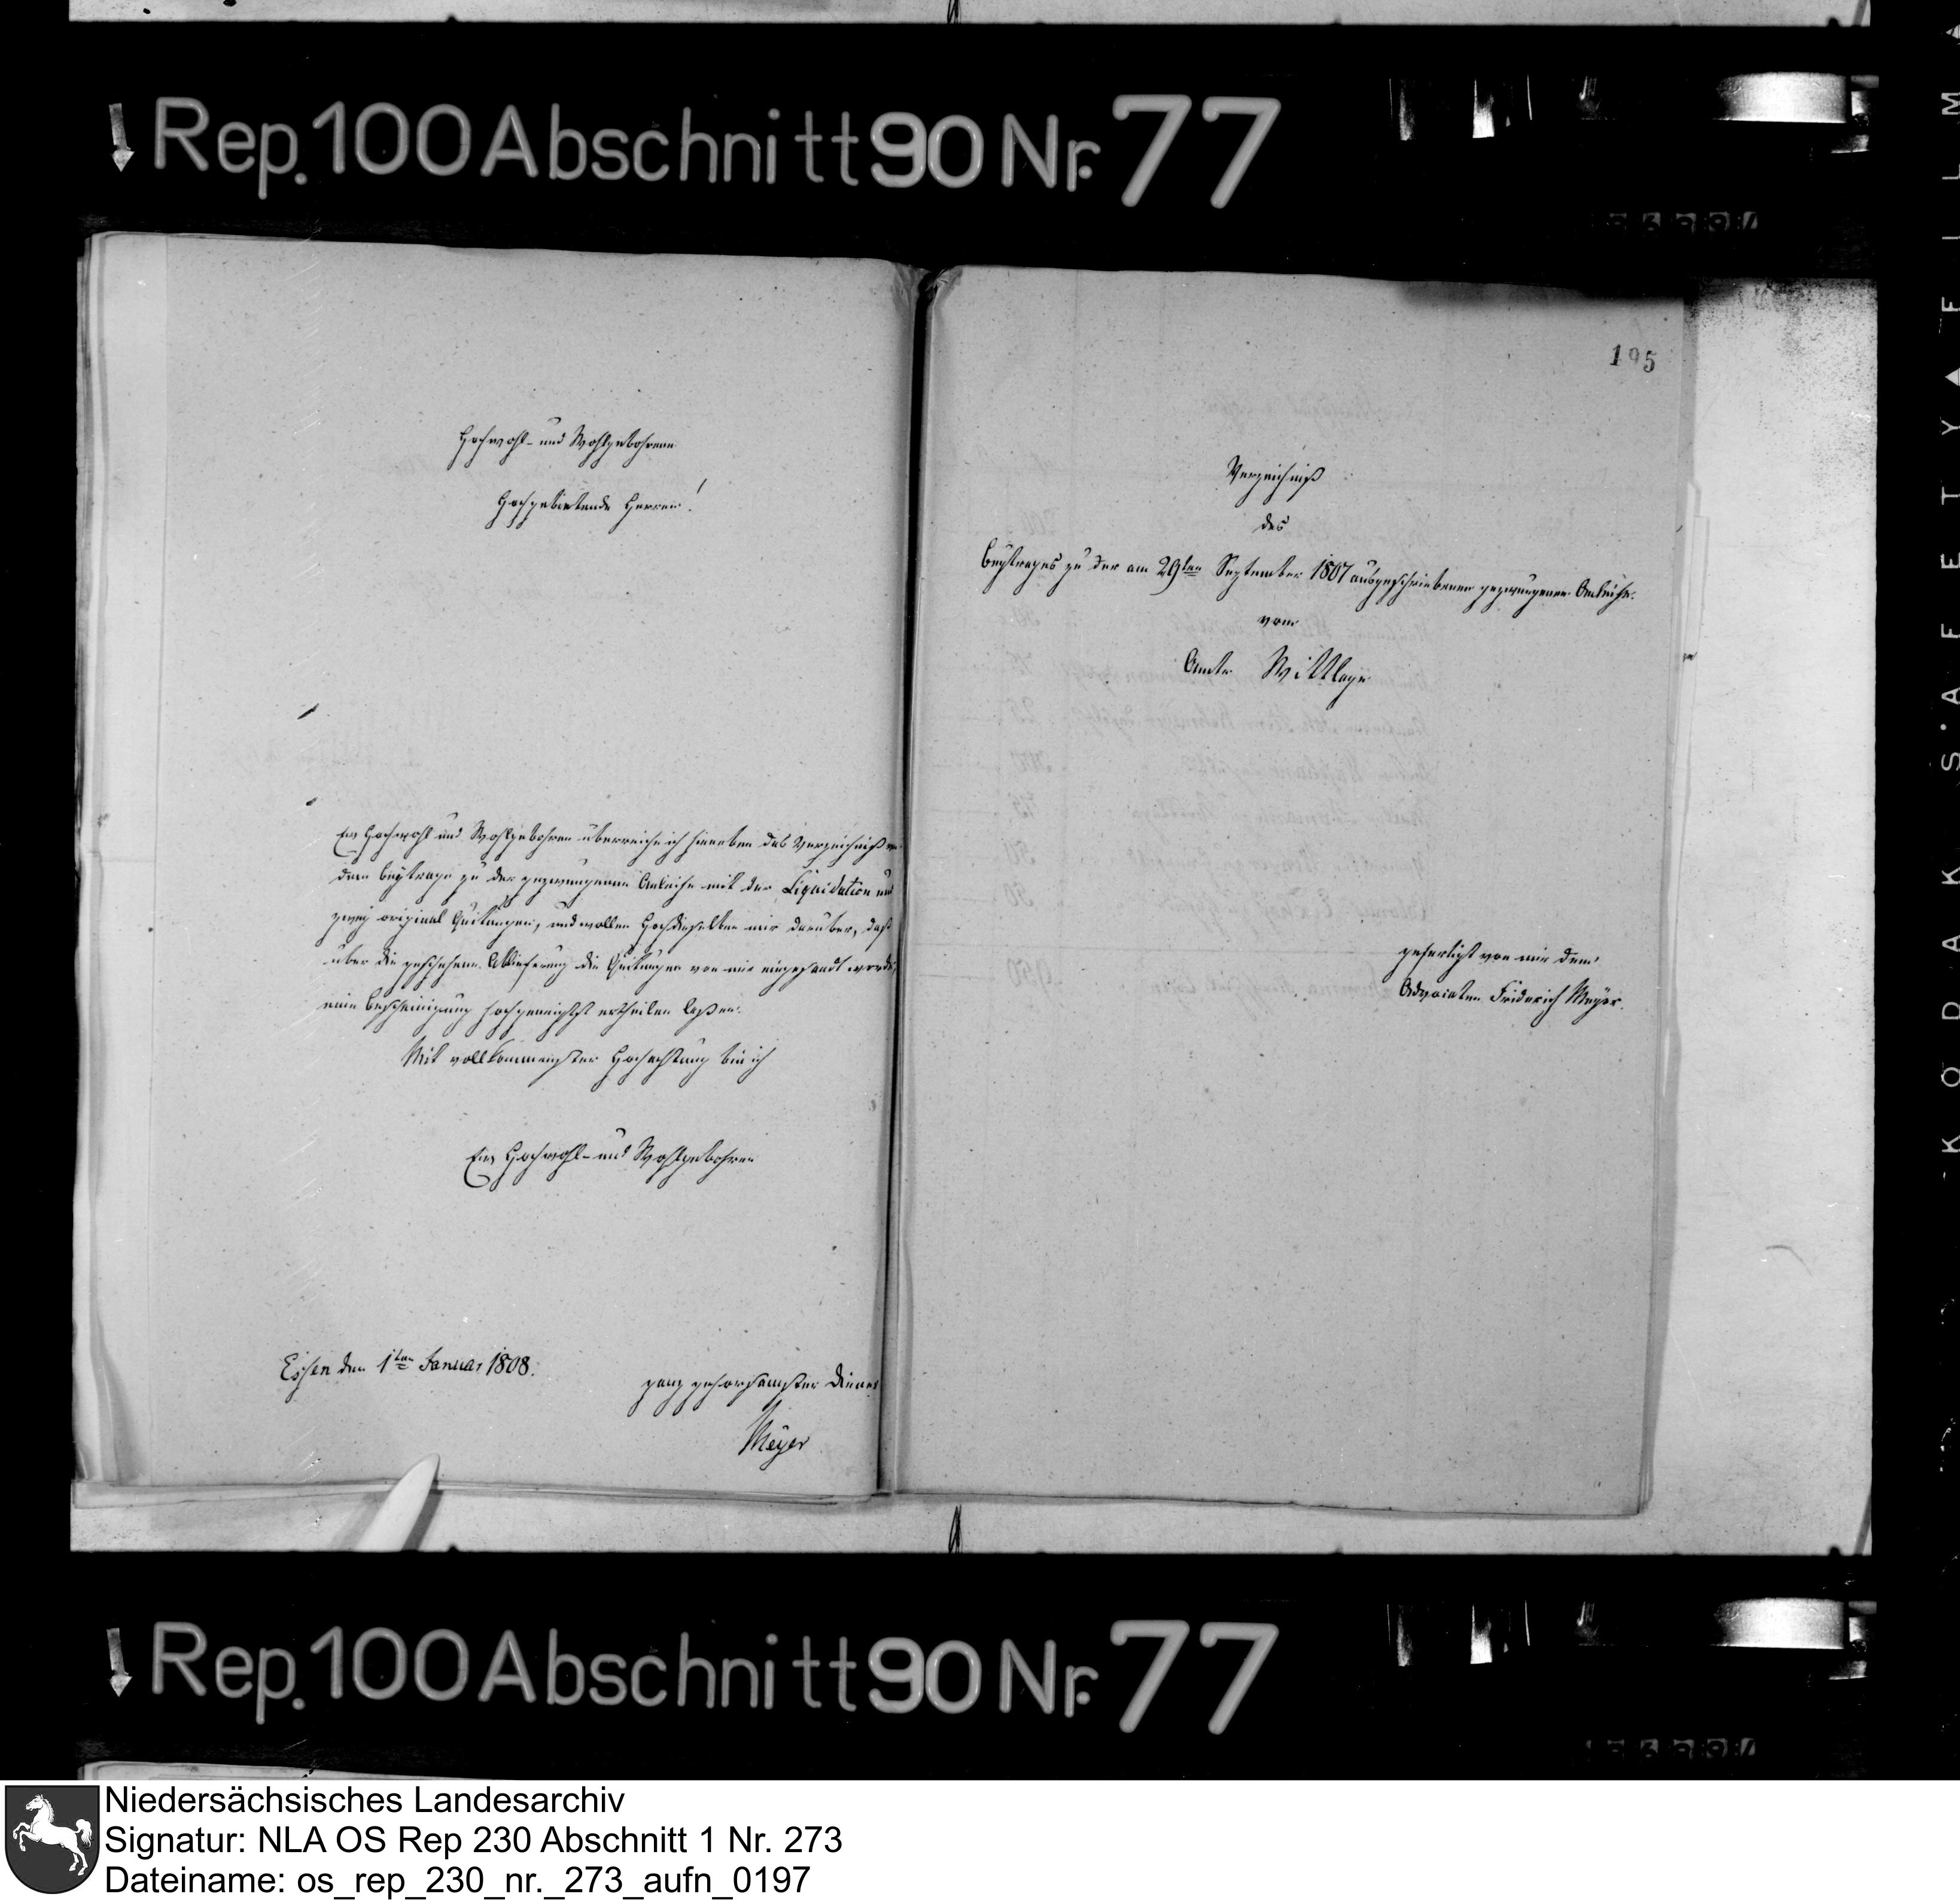 Rep. 100 Abschnitt 90 Nr. 77
Hochwohl- und Wohlgebohrene
Hochgebietende Herren!
Ew Hochwohl und Wohlgebohren überreiche ich hieneben das Verzeichniß von
dem beÿtrage zu der gezwungenen Anleihe mit der Liquidation und
zweÿ original Quitungen, und wollen Hochdieselben mir darüber, daß
über die geschehene Ablieferung die Quitungen von mir eingesandt worden,
eine bescheinigung hochgeneigtst ertheilen laßen.
Mit vollkommenster Hochachtung bin ich
Ew Hochwohl- und Wohlgebohren
Essen den 1ten Januar 1808.
ganz gehorsamster Diener
Meÿer
195
Verzeichniß
des
beÿtrages zu der am 29ten September 1807 ausgeschriebenen gezwungenen Anleihe.
vom
Amte Wittlage
gefertigt von mir dem
Advocaten Friderich Meÿer.
Rep. 100 Abschnitt 90 Nr. 77
KODAK SAFETY FILM
Niedersächsisches Landesarchiv
Signatur: NLA OS Rep 230 Abschnitt 1 Nr. 273
Dateiname: os_rep_230_nr._273_aufn_0197